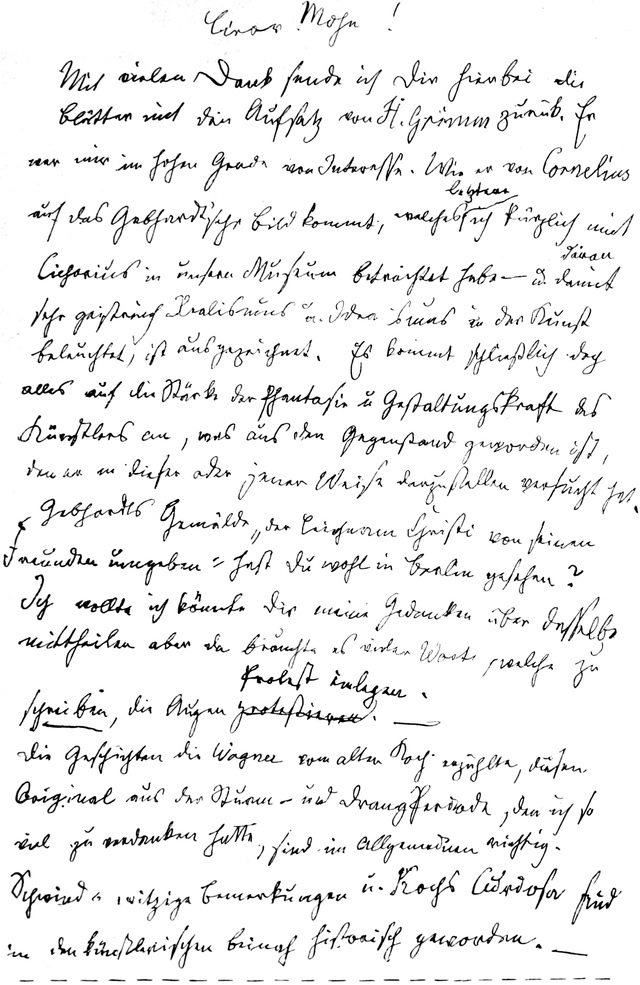 Mit vielen Dank sende ich Dir hierbei die
Blätter mit den Aufsatz von H. Grimm zurück. Er
war mir im hohen Grade von Interesse. Wie er von Cornelius
letztere
auf das Gebhardt'sche Bild kommt, welches ich kürzlich mit
daran
Cichorius in unsern Museum betrachtet habe – u. damit
sehr geistreich Realismus u. Idealismus in der Kunst
beleuchtet, ist ausgezeichnet. Es kommt schließlich doch
alles auf die Stärke der Phantasie u Gestaltungskraft des
Künstlers an, was aus den Gegenstand geworden ist,
den er in dieser oder jener Weise darzustellen versucht hat.
Gebhardts Gemälde „der Leichnam Christi von seinen
Freunden umgeben" hast Du wohl in Berlin gesehen?
Ich wollte ich könnte Dir meine Gedanken über dasselbe
mittheilen aber da brauchte es vieler Worte, welche zu
Protest einlegen.
schreiben, die Augen protestieren. —
Die Geschichten die Wagner vom alten Koch erzählte, diesen
Original aus der Sturm- und Drang Periode, den ich so
viel zu verdanken hatte, sind im Allgemeinen richtig.
Schwind's witzige Bemerkungen u. Kochs sind
in den künstlerischen beinah historisch geworden. —